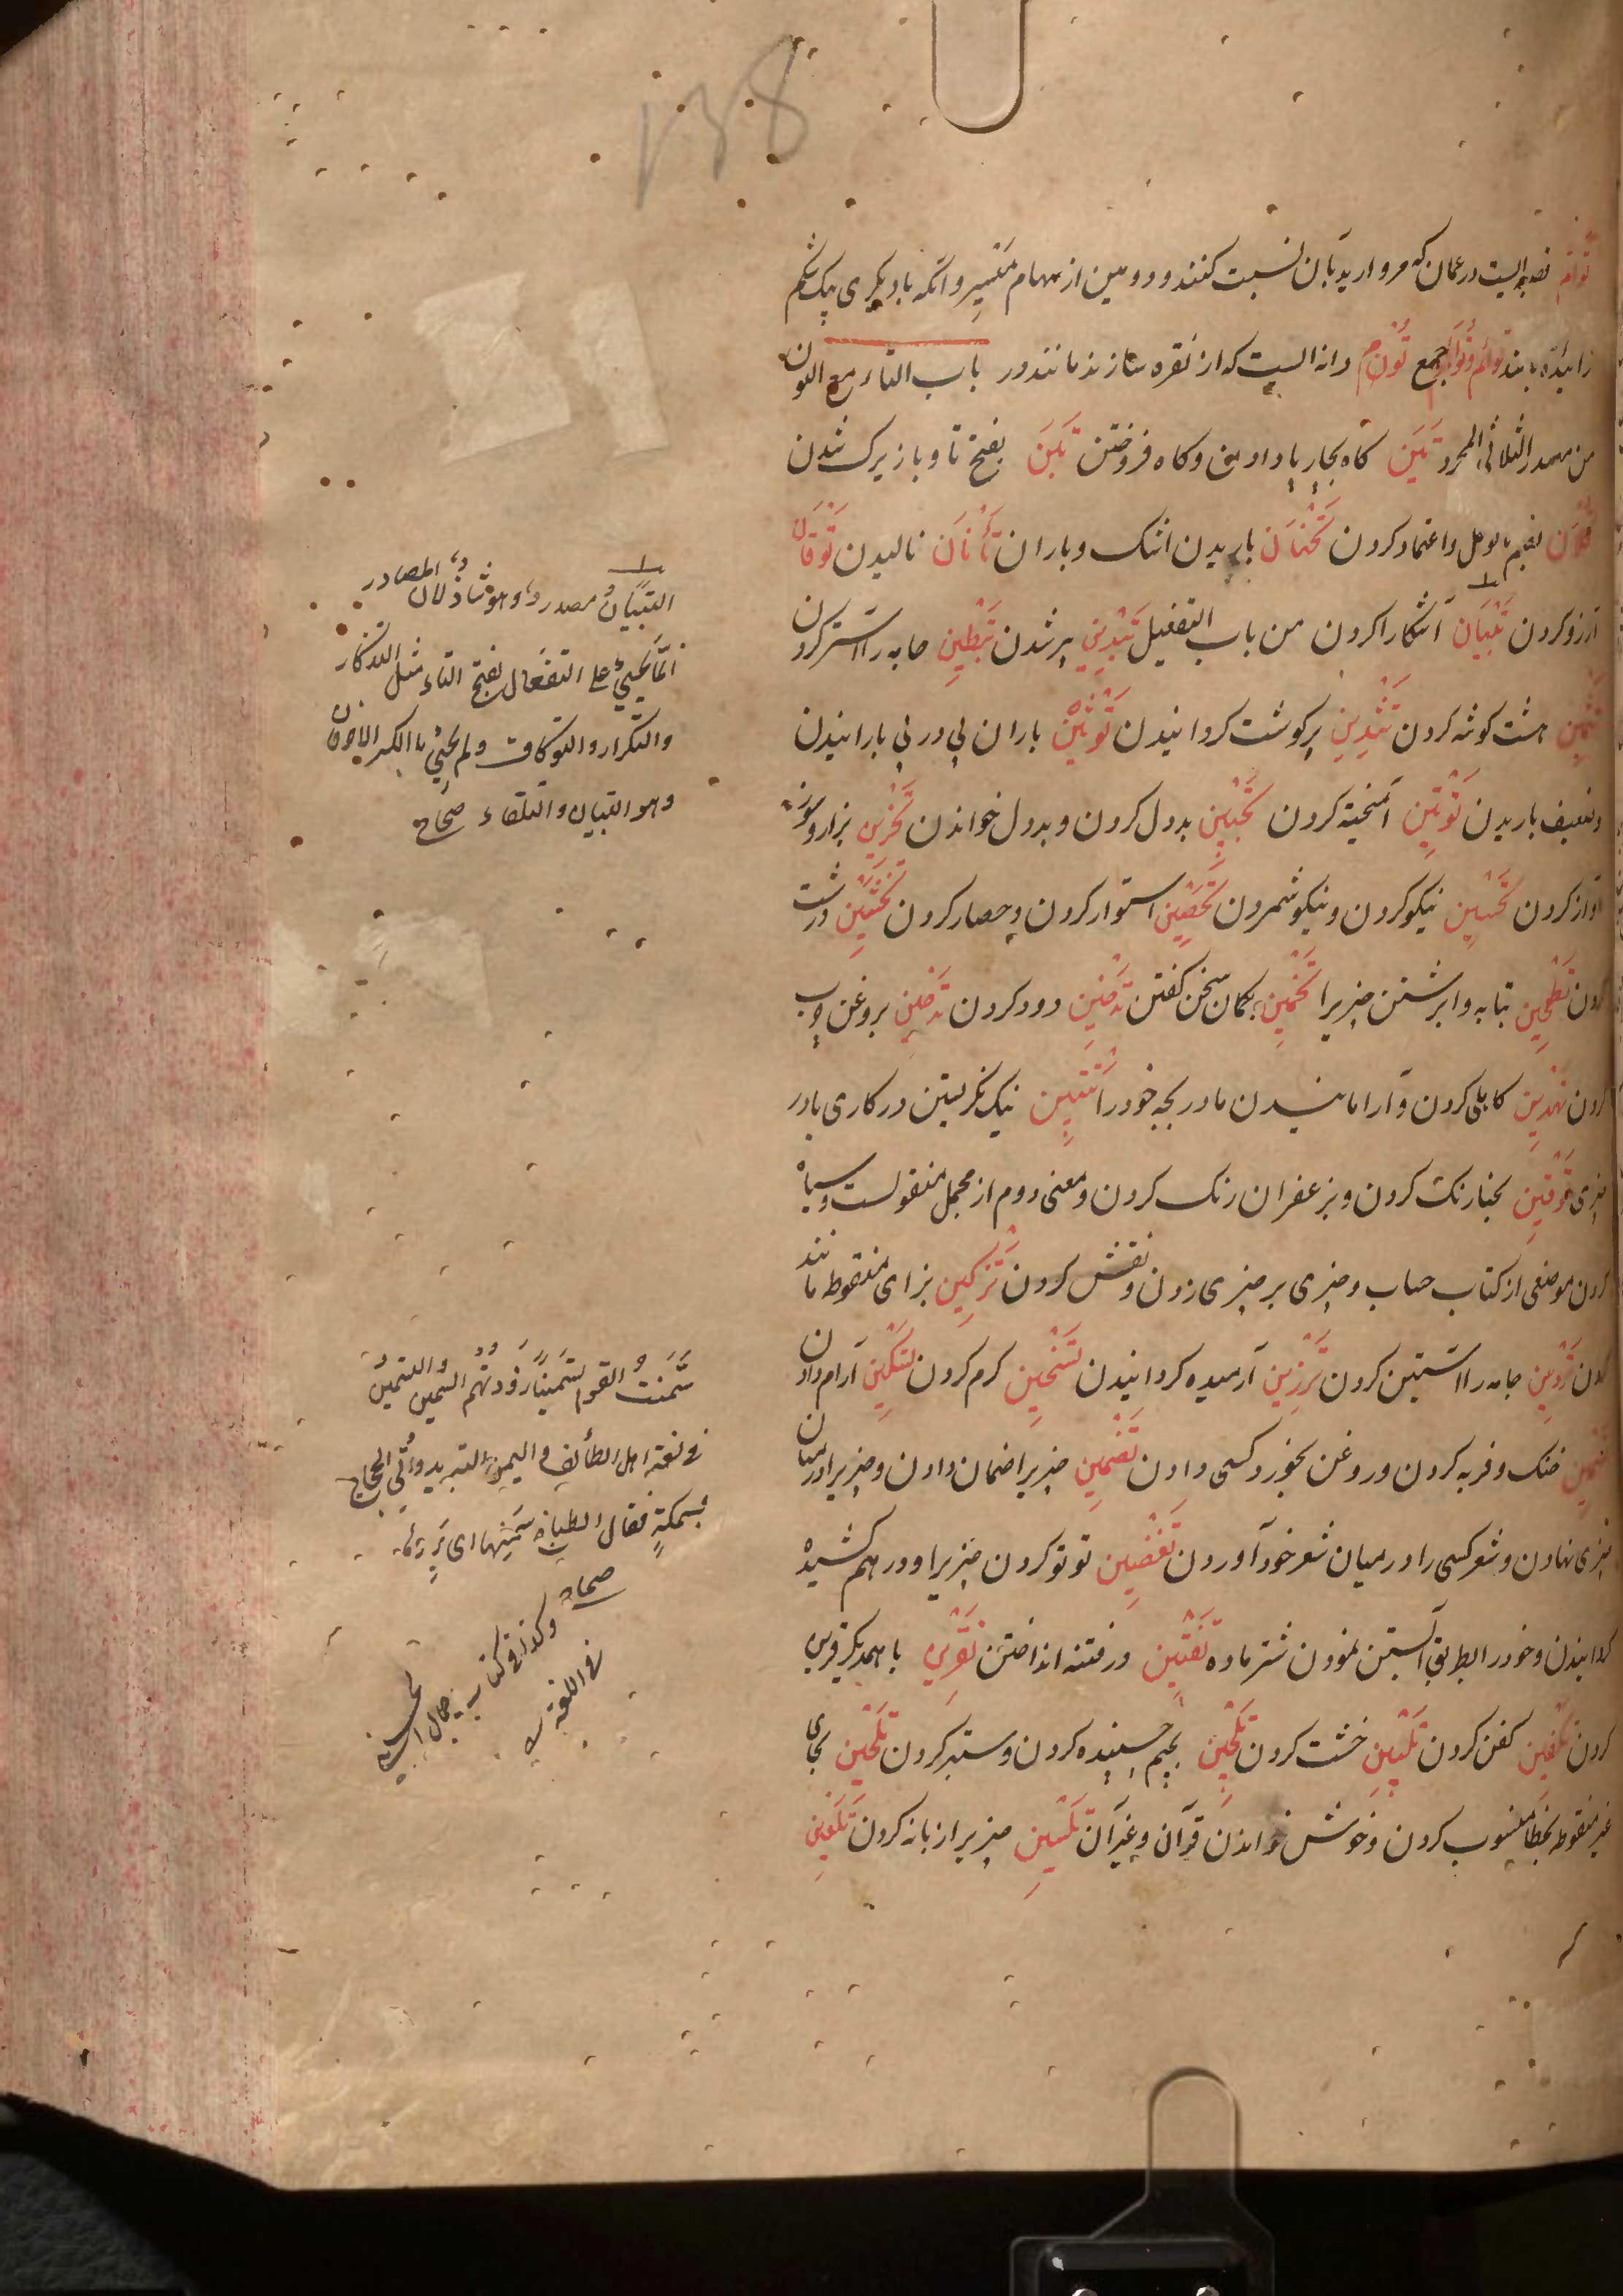 ۱۳۸
توأم قصبه ایست در عمان که مروارید بآن نسبت کنند و دومین از سهام میسر و آنکه با دیکری بیک شکم
زائیده باشد توائم وتوأم جمع تؤام دانه ایست که از نقره سازند مانند در باب التاء مع النون
من مصدر الثلاثی المجرد تبن کاه بچارپا دادن وکاه فروختن تبن بفتح تا وبا زیرک شدن
بضم تا وکل واعتماد کردن تهتان باریدن اشک و باران تأنان نالیدن توقان
آرزو کردن تبیان آشکارا کردن من باب التفعیل تبدین پیر شدن تبطین جامه را آستر کردن
تثمین هشت کوشه کردن تثدین پر کوشت کردانیدن توثین باران پی در پی بارانیدن
وضعیف باریدن توتین آمیخته کردن تجبین بددل کردن و بددل خواندن تحزین بزار وسوزن
آواز کردن تحسین نیکو کردن ونیکو شمردن تحصین استوار کردن وحصار کردن تخشین درشت
کردن تطجین بتابه وا برشتن چیزیرا تخمین بکمان سخن کفتن تدخین دود کردن تدهین بروغن چرب
کردن تهدین کاهلی کردن وآرامانیدن مادر بچه خود را تتبین نیک نکریستن در کاری باور
چیزی ترقین بحنا رنک کردن وبزعفران رنک کردن ومعنی دوم از مجمل منقولست وسیاه
کردن موضعی از کتاب حساب وچیزی بر چیزی زدن ونقش کردن تزکین بزای منقوطه مانند
کردن تردین جامه را آستین کردن ترزین آرمیده کردانیدن تسخین کرم کردن تسکین آرام دادن
تسمین خنک وفربه کردن وروغن بخورد کسی دادن تضمین چیزیرا ضمان دادن وچیزیرا درمیان
چیزی نهادن وشعر کسی را درمیان شعر خود آوردن تغضین توتو کردن چیزیرا ودرهم کشیده
کردانیدن وخود را بطریق آبستن نمودن شتر ماده تفتین در فتنه انداختن تقرین با همدیکر قرین
کردن تکفین کفن کردن تلبین خشت کردن تلجین بجیم چسبنده کردن وستبر کردن تلحین بحای
غیر منقوطه بخطا منسوب کردن وخوش خواندن قرآن وغیر آن تلسین چیزیرا زبانه کردن تلعین
التبیان مصدر وهو شاذ لان المصادر
انما تجیئ علی التفعال بفتح التاء مثل التذکار
والتکرار والتوکاف ولم یجئ بالکسر الا حرفان
وهو التبیان والتلقاء صحاح
سمنت القوم تسمینا زودتهم السمین والتسمین
فی لغة اهل الطائف والیمن التبرید واتی الحجاج
بسمکة فقال للطباخ سمنها ای بردها
صحاح وکذا فی کتاب
فی اللغة